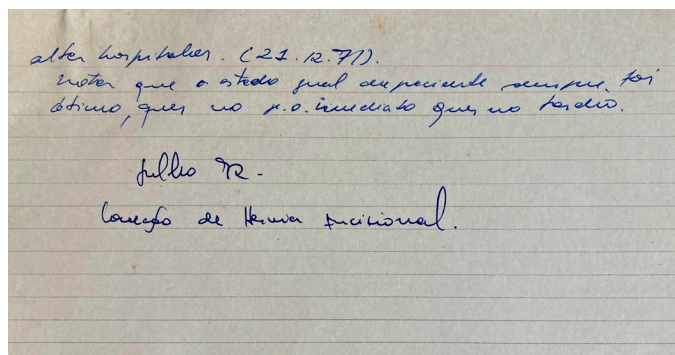 alta hospitalar. (21.12.71).
Notar que o estado geral da paciente sempre foi
ótimo, quer no p.o. imediato quer no tardio.
Julho 72.
Correção de Hernia Incisional.